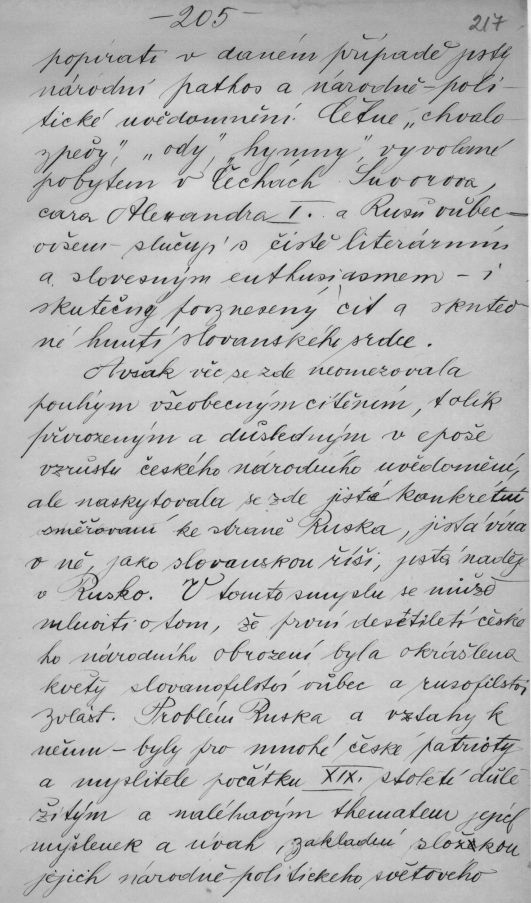 -205-
217
popírati v daném případě jistý
národní pathos a národně-poli-
tické uvědomnění. Četné „chvalo-
zpěvy“, „ody“, „hymny“, vyvolané
pobytem v Čechach Suvorova,
cara Alexandra I. a Rusů vůbec -
ovšem slučují s čistě literárním
a slovesným enthusiasmem - i
skutečný povznesený cit a skuteč-
né hnutí slovanského srdce.
Avšak věc se zde neomezovala
pouhým všeobecným cítěním, tolik
přirozeným a důsledným v epoše
vzrůstu českého národního uvědomění,
ale naskytovala se zde jisté konkrétní
směřovaní ke straně Ruska, jistá víra
v ně, jako slovanskou říši, jistá naděj
v Rusko. V tomto smyslu se může
mluviti o tom, že první desítiletí české
ho národního obrození byla okrášlena
květy slovanofilství vůbec a rusofilství
zvlášt. Problém Ruska a vztahy k
němu - byly pro mnohé české patrioty
a myslitele počátku XIX. století důle
žitým a naléhavým thematem jejich
myšlenek a úvah, zakladní složkou
jejich národně politického světového